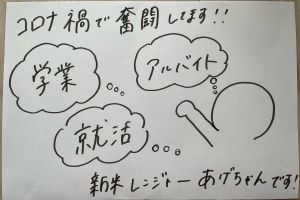 コロナ禍で奮闘してます!!
学業
アルバイト
就活
新米レンジャー あげちゃんです!